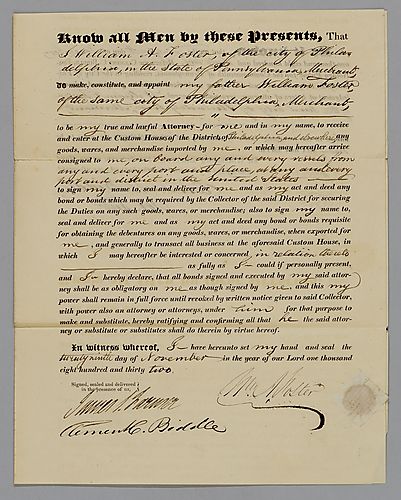 Know all Men by these Presents, That
I William A. Foster, of the city of Phila
delphia, in the State of Pennsylvania, Merchant,
do make, constitute, and appoint my father William Foster
of the same city of Philadelphia, Merchant
to be my true and lawful Attorney for me and in my name, to receive
and enter at the Custom House of the District of Philadelphia, any
goods, wares, and merchandise imported by me, or which may hereafter arrive
consigned to me, on board any and every vessel from
any and every port and place, at any and every
port and district in the United States
to sign my name, to seal and deliver for me and as my act and deed any
bond or bonds which may be required by the Collector of the said District for securing
the Duties on any such goods, wares, or merchandise; also to sign my name, to
seal and deliver for me and as my act and deed any bond or bonds requisite
for obtaining the debentures on any goods, wares, or merchandise, when exported for
me, and generally to transact all business at the aforesaid Custom House, in
which I may hereafter be interested or concerned, in relation thereto
as fully as I could if personally present,
and I hereby declare, that all bonds signed and executed by my said attor-
ney shall be as obligatory on me as though signed by me, and this my
power shall remain in full force until revoked by written notice given to said Collector,
with power also an attorney or attorneys, under him for that purpose to
make and substitute, hereby ratifying and confirming all that he the said attor-
ney or substitute or substitutes shall do therein by virtue hereof.
In witness whereof, I have hereunto set my hand and seal the
twenty ninth day of November in the year of our Lord one thousand
eight hundred and thirty two.
Signed, sealed and delivered
in the presence of us,
Wm. A. Foster
Clement C. Biddle